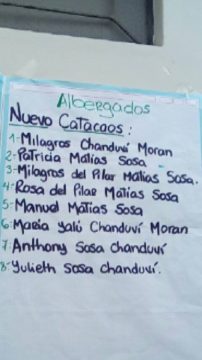 Albergados
Nuevo Catacaos:
1-Milagros Chanduví Moran
2-Patricia Matias Sosa
3-Milagros del Pilar Matias Sosa.
4-Rosa del Pilar Matias Sosa
5-Manuel Matias Sosa
6-Maria Yalú Chanduví Moran
7-Anthony Sosa Chanduví
8-Yulieth Sosa Chanduví.